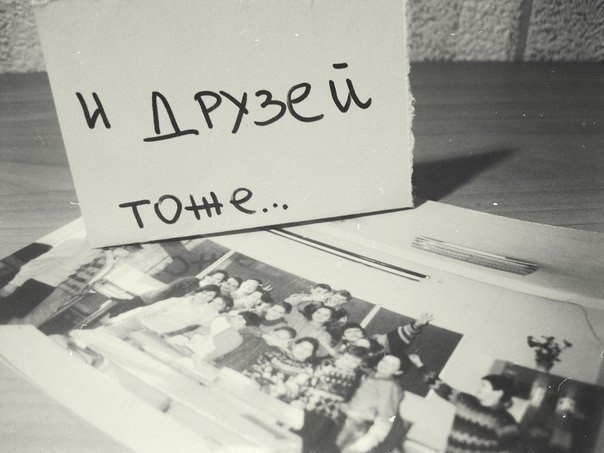 и друзей
тоже...